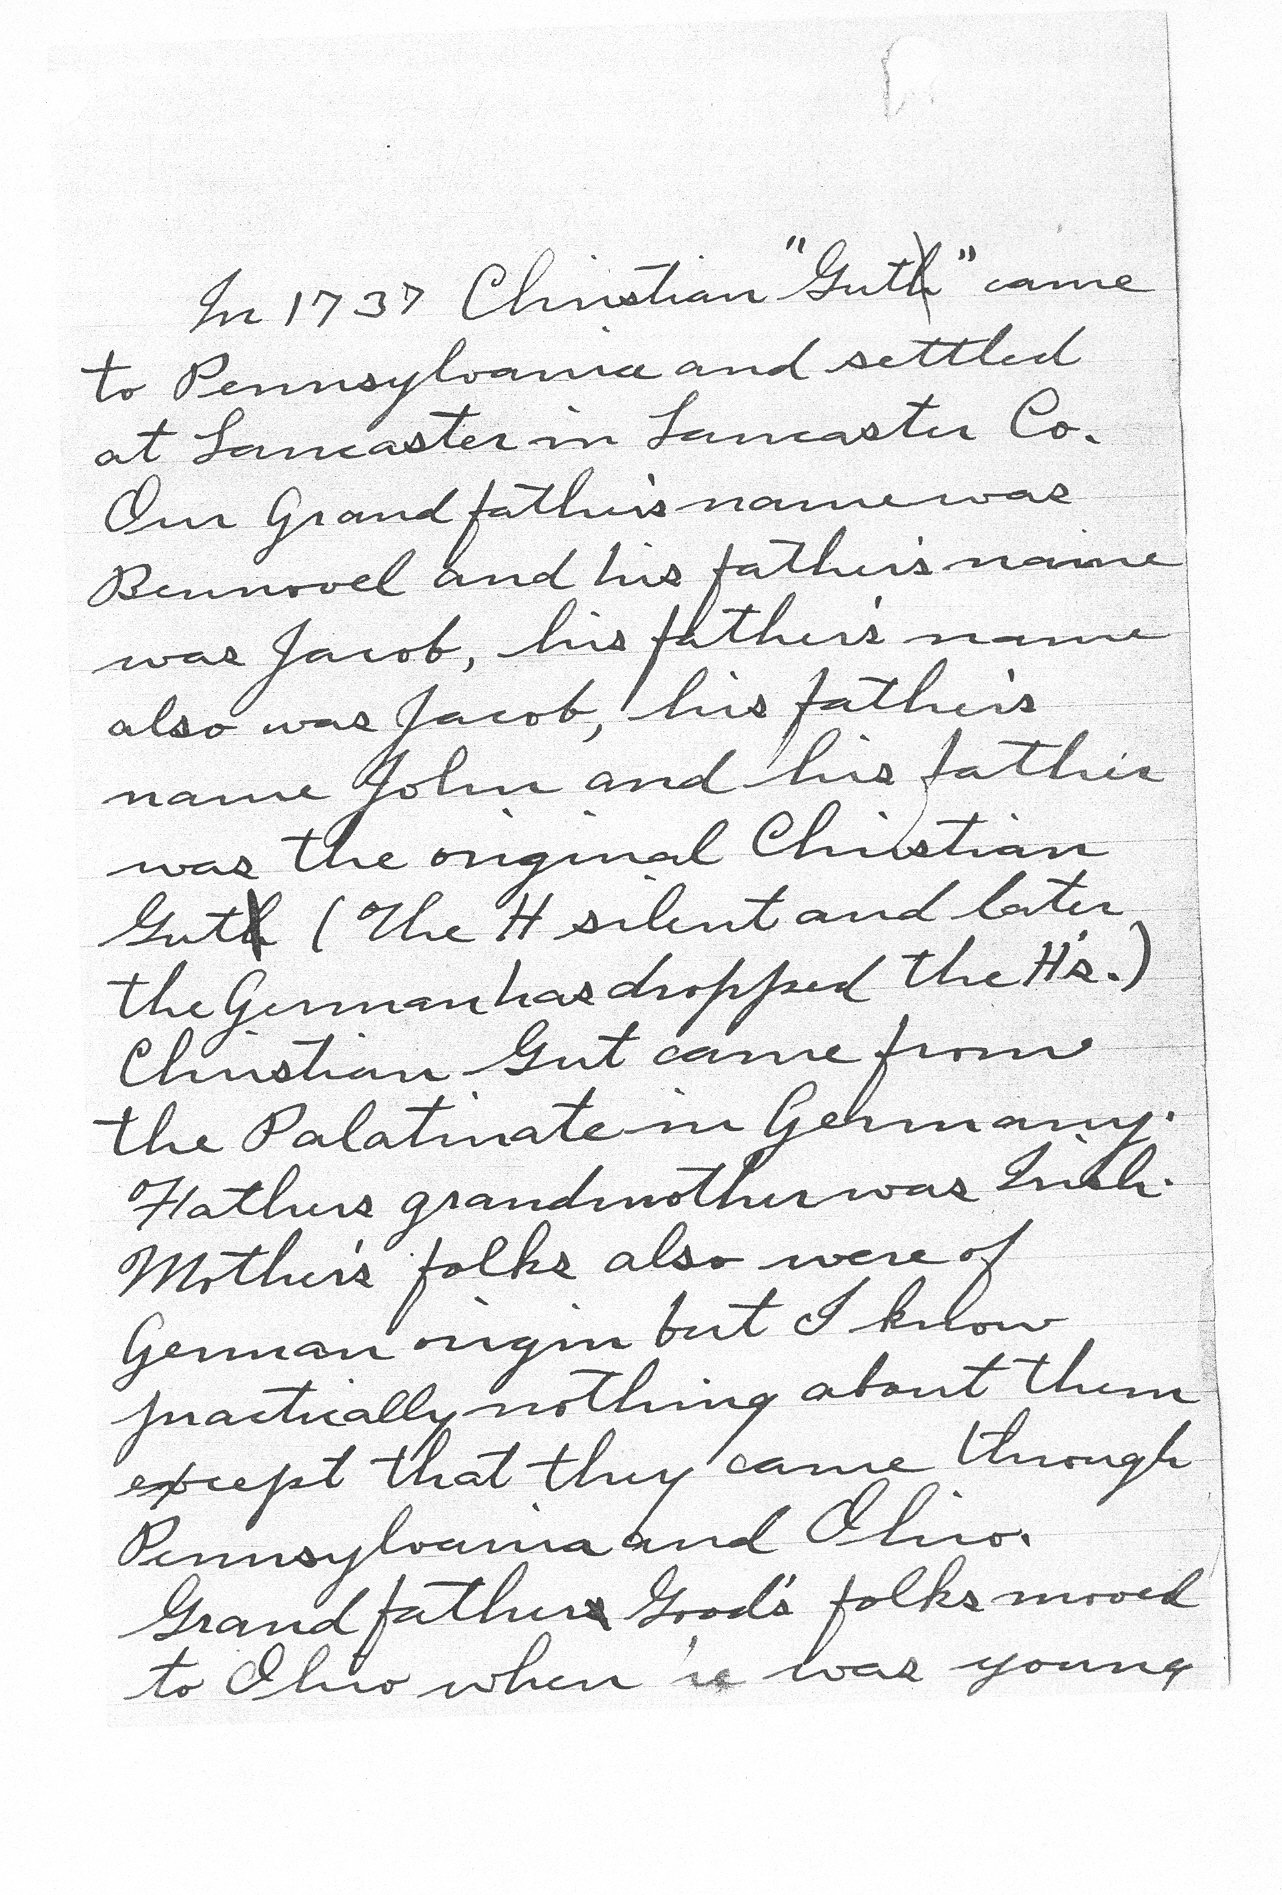 In 1737 Christian "Guth" came
to Pennsylvania and settled
at Lancaster in Lancaster Co.
Our Grandfather's name was
Bennovel and his father's name
was Jacob, his father's name
also was Jacob, his father's
name John and his father
was the original Christian
Guth (The H silent and later
the German has dropped the H's.)
Christian Gut came from
the Palatinate in Germany.
Fathers grandmother was Irish.
Mother's folks also were of
German origin but I know
practically nothing about them
except that they came through
Pennsylvania and Ohio.
Grandfather Good's folks moved
to Ohio when he was young